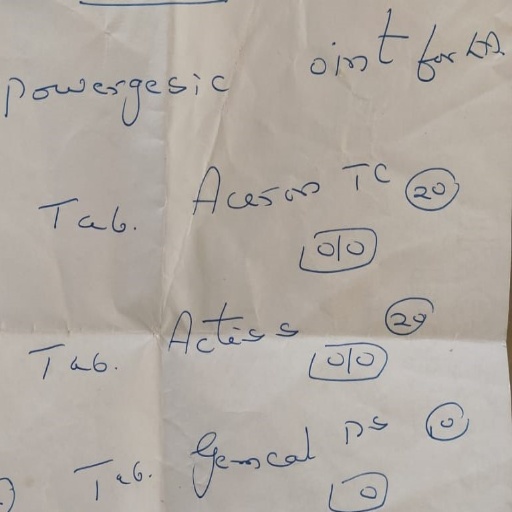 Powergesic oint for LA
Tab. Aceron TC 20
0|0
Tab. Actiss 20
0|0
Tab. Gemcal DS 10
0